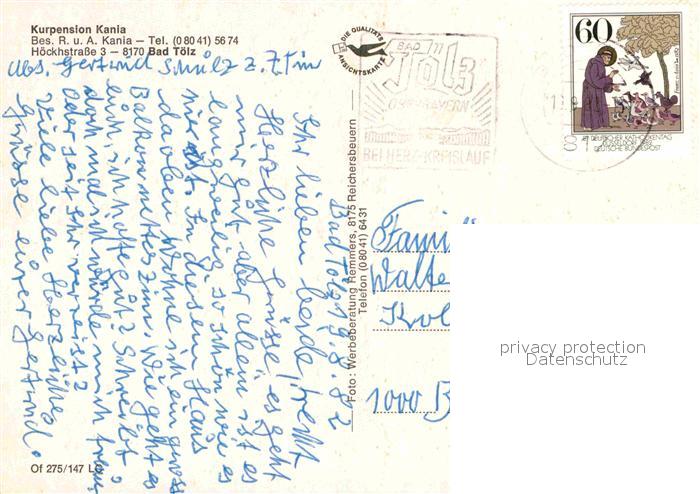 Kurpension Kania
Bes. R. u. A. Kania – Tel. (0 80 41) 56 74
Höckhstraße 3 – 8170 Bad Tölz
Abs. Gertrud Schulz z. Zt in
Bad Tölz 19.8.82
Ihr lieben beide, recht
Herzliche Grüsse, es geht
mir gut aber allein ist es
langweilig so schön wie es
hier ist. In diesem Haus
da oben wohne ich ein gross
Balkonnetterzim. Wie geht es
euch, ich hoffe gut? Schreibt
doch mal ich würde mich freuen
oder seit Ihr verreist?
Viele liebe Herzliche
Grüsse eurer Gertrud.
Of 275/147 L
DIE QUALITÄTS
ANSICHTSKARTE
Foto: Werbeberatung Remmers, 8175 Reichersbeuern –
Telefon (08041) 6431
BAD
TÖLZ
OBERBAYERN
BEI HERZ-KREISLAUF
60
87. DEUTSCHER KATHOLIKENTAG
DÜSSELDORF 1982
DEUTSCHE BUNDESPOST
Famili
Walte
Kol
1000 B
privacy protection
Datenschutz